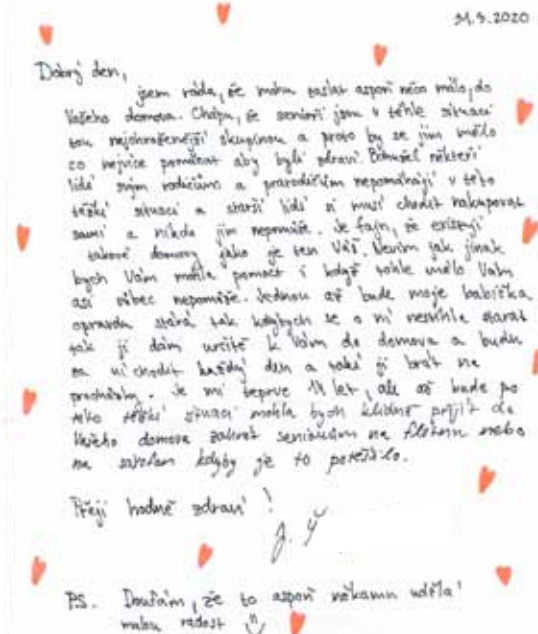 31.3.2020
Dobrý den,
jsem ráda, že mohu zaslat aspoň něco málo, do
Vašeho domova. Chápu, že senioři jsou v téhle situaci
tou nejohroženější skupinou a proto by se jim mělo
co nejvíce pomáhat aby byli zdraví. Bohužel někteří
lidé svým rodičům a prarodičům nepomáhají v této
těžké situaci a starší lidé si musí chodit nakupovat
sami a nikdo jim nepomůže. Je fajn, že existují
takové domovy jako je ten Váš. Nevím jak jinak
bych Vám mohla pomoct i když tohle málo Vám
asi vůbec nepomůže. Jednou až bude moje babička
opravdu stará tak kdybych se o ní nestihla starat
tak jí dám určitě k Vám do domova a budu
za ní chodit každý den a také jí brát na
procházky. Je mi teprve 14 let, ale až bude po
této těžké situaci mohla bych klidně přijít do
Vašeho domova zahrát seniorům na flétnu nebo
na saxofon kdyby je to potěšilo.
Přeji hodně zdraví!
PS. Doufám, že to aspoň někomu udělá
malou radost